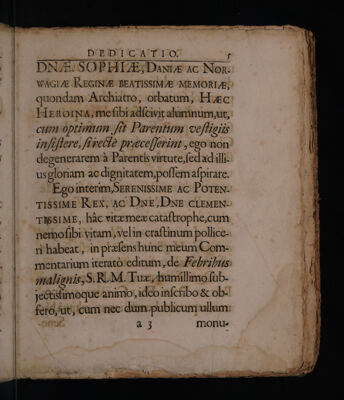 DEDICATIO. 5
DNÆ SOPHIÆ, DANIÆ AC NOR-
WAGIÆ REGINÆ BEATISSIMÆ MEMORIÆ,
quondam Archiatro, orbatum, HÆC
HEROINA, me sibi adscivit alumnum, ut,
cum optimum sit Parentum vestigiis
insistere, si rectè præcesserint, ego non
degenerarem à Parentis virtute, sed ad illi-
us gloriam ac dignitatem, possem aspirare.
Ego interim, SERENISSIME AC POTEN-
TISSIME REX, AC DNE, DNE CLEMEN-
TISSIME, hâc vitæ meæ catastrophe, cum
nemo sibi vitam, vel in crastinum pollice-
ri habeat, in præsens hunc meum Com-
mentarium iteratò editum, de Febribus
malignis, S. R. M. Tuæ, humillimo sub-
jectissimoque animo, ideo inscribo & of-
fero, ut, cum nec dum publicum ullum
a 3 monu-